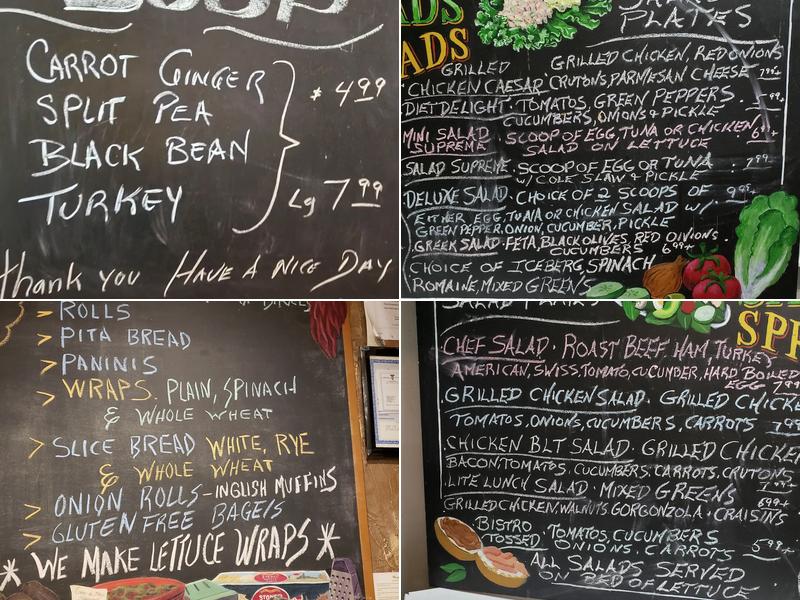 SOUP
CARROT GINGER
SPLIT PEA
$ 4.99
BLACK BEAN
TURKEY
Lg 7.99
thank you HAVE A NICE DAY
ADS
ADS
PLATES
GRILLED GRILLED CHICKEN, RED ONIONS
CHICKEN CAESAR CRUTONS, PARMESAN CHEESE 7.99+
DIET DELIGHT. TOMATOS, GREEN PEPPERS
CUCUMBERS, ONIONS & PICKLE
MINI SALAD SCOOP OF EGG, TUNA OR CHICKEN
SUPREME SALAD ON LETTUCE 6.99+
SALAD SUPREME. SCOOP OF EGG OR TUNA 7.99
W/ COLE SLAW & PICKLE
DELUXE SALAD. CHOICE OF 2 SCOOPS OF 9.99
EITHER EGG, TUNA OR CHICKEN SALAD W/.
GREEN PEPPER, ONION, CUCUMBER, PICKLE
GREEK SALAD. FETA, BLACK OLIVES, RED ONIONS
CUCUMBERS 6.99+
CHOICE OF ICEBERG, SPINACH
ROMAINE, MIXED GREENS
> ROLLS
> PITA BREAD
> PANINIS
> WRAPS. PLAIN, SPINACH
& WHOLE WHEAT
> SLICE BREAD WHITE, RYE
& WHOLE WHEAT
> ONION ROLLS - INGLISH MUFFINS
> GLUTEN FREE BAGELS
* WE MAKE LETTUCE WRAPS *
SP
CHEF SALAD. ROAST BEEF HAM, TURKEY
AMERICAN, SWISS, TOMATO, CUCUMBER, HARD BOILED
EGG 7.99
GRILLED CHICKEN SALAD. GRILLED CHICKE
TOMATOS, ONIONS, CUCUMBERS, CARROTS 7.99
CHICKEN BLT SALAD. GRILLED CHICKEN
BACON, TOMATOS, CUCUMBERS, CARROTS, CRUTONS
LITE LUNCH SALAD. MIXED GREENS
GRILLED CHICKEN, WALNUTS GORGONZOLA. CRAISINS 6.99+
BISTRO TOMATOS, CUCUMBERS
TOSSED. ONIONS, CARROTS 5.99+
ALL SALADS SERVED
ON BED OF LETTUCE